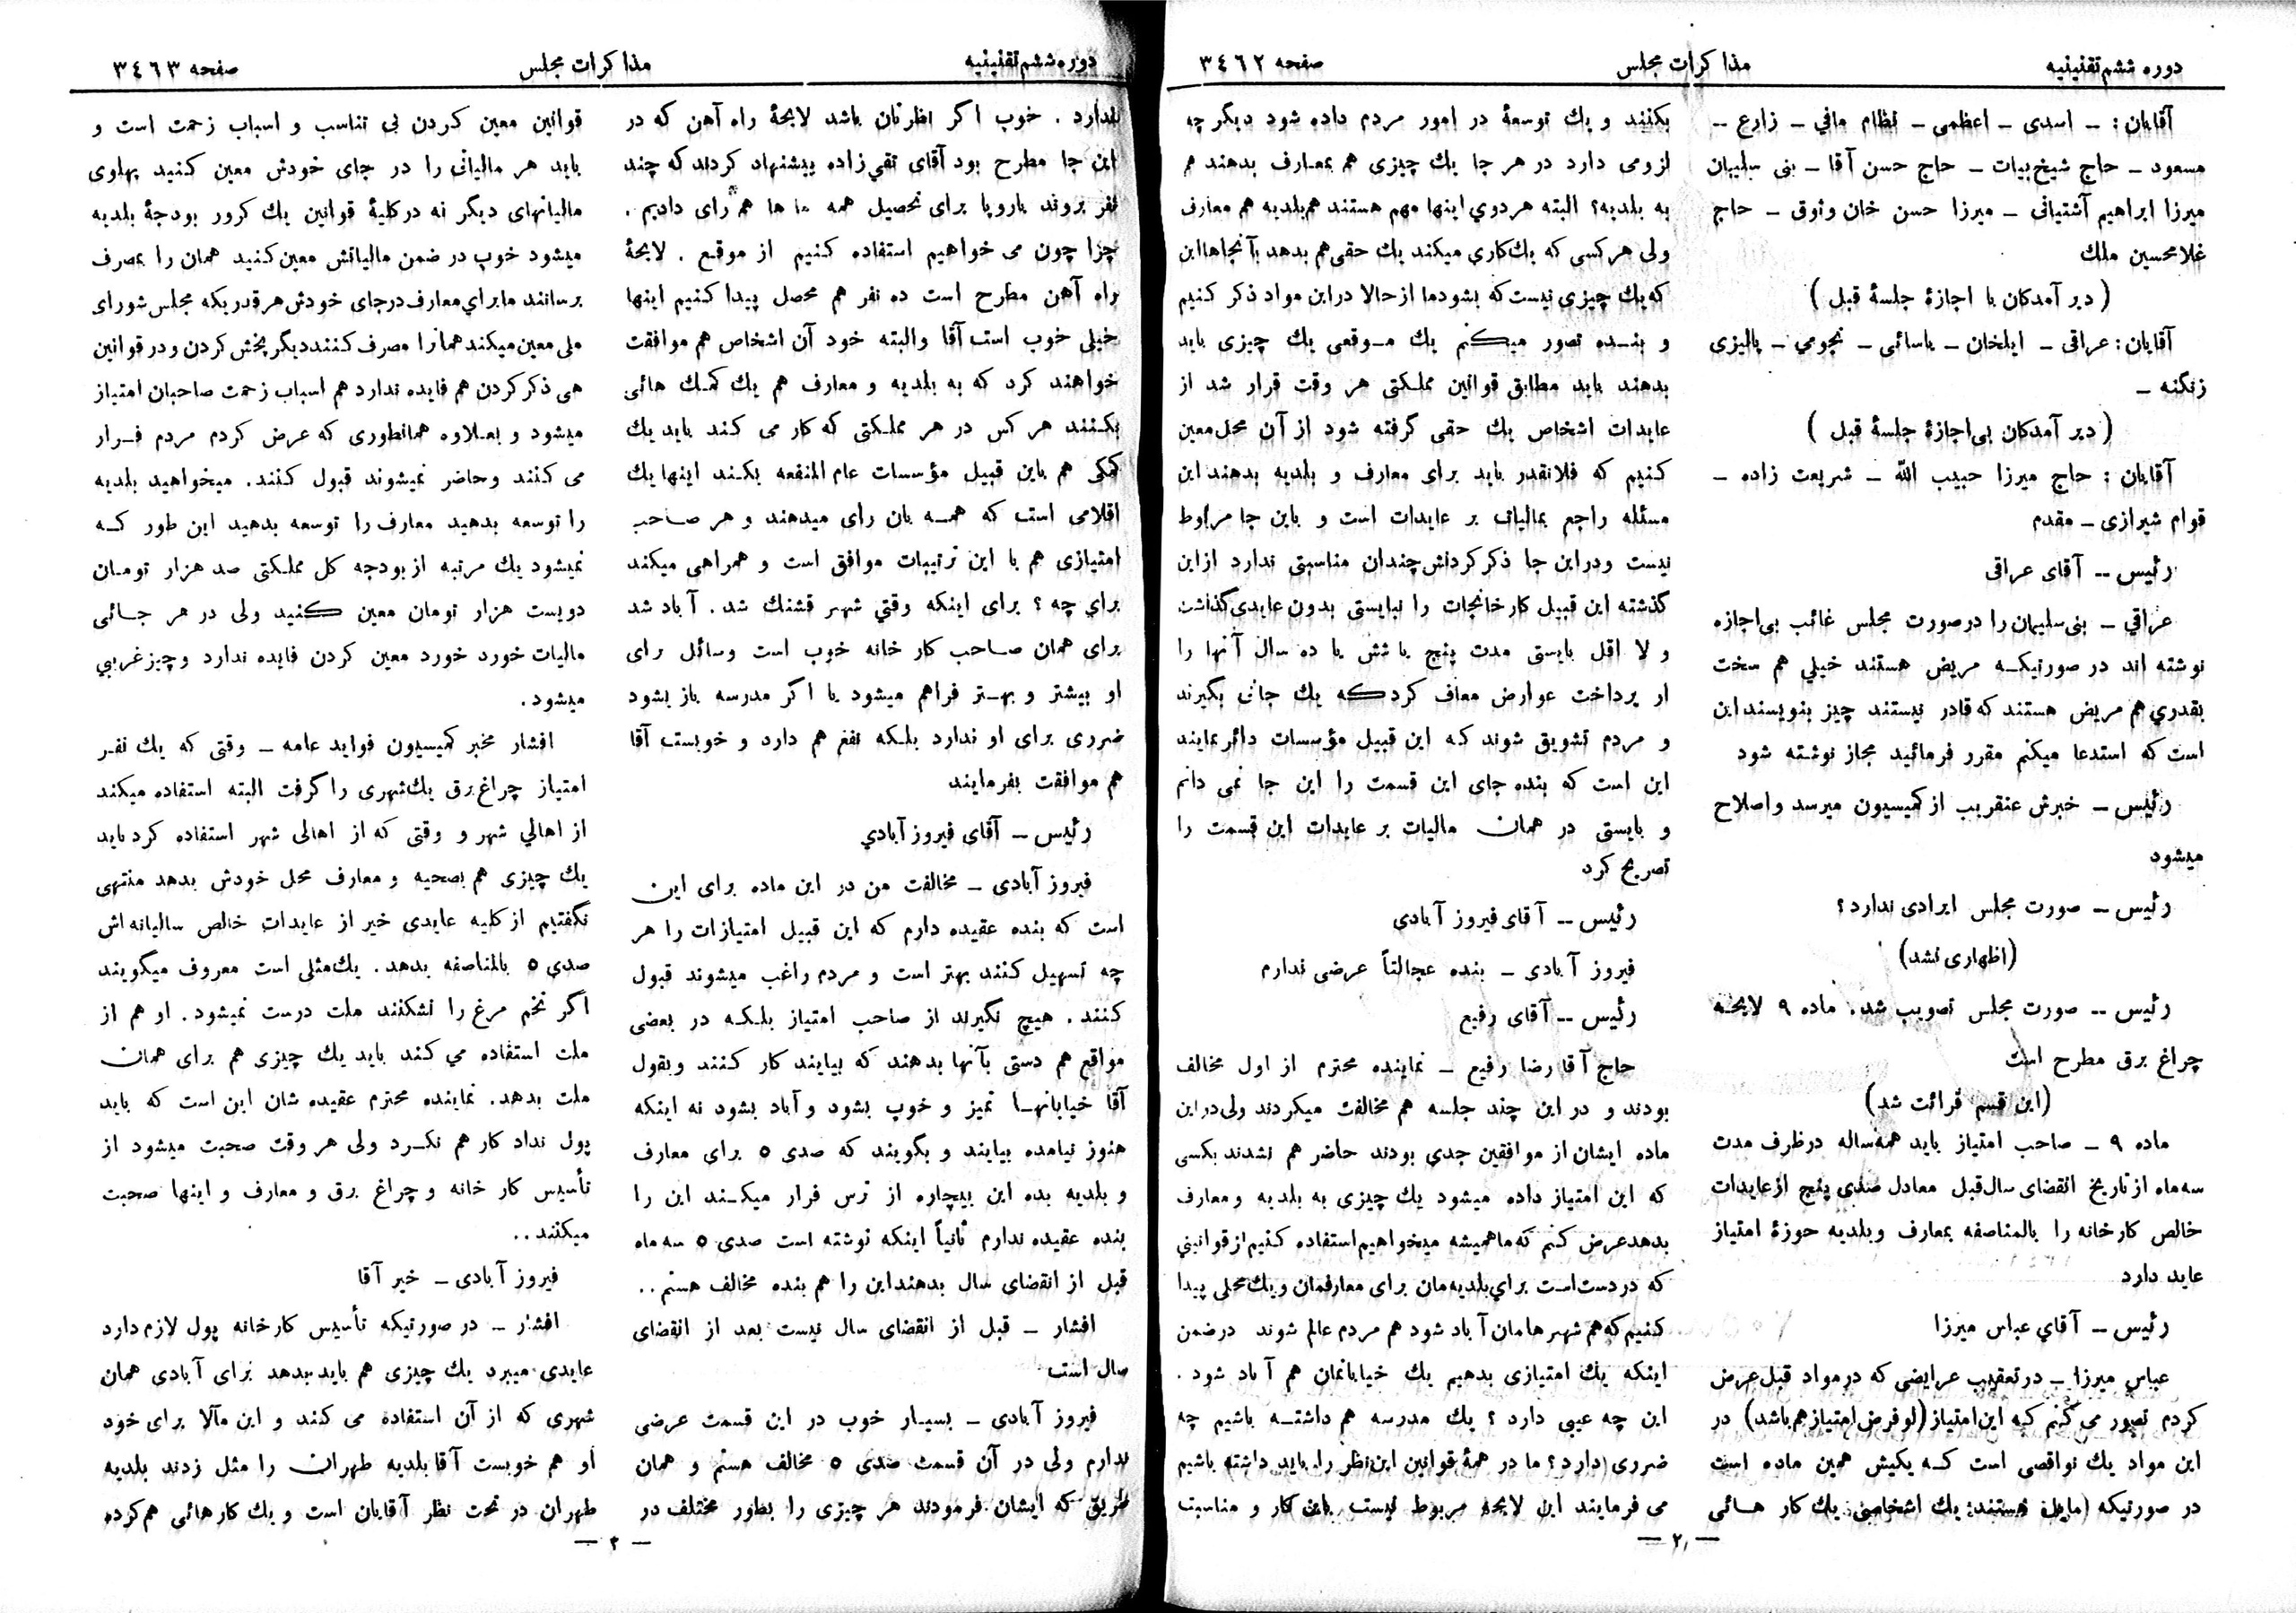 دوره ششم تقنینیه
مذاکرات مجلس
صفحه ٣٤٦٢
آقایان : ـ اسدی ـ اعظمی ـ نظام مافي ـ زارع ـ
مسعود ـ حاج شیخ بیات ـ حاج حسن آقا ـ بنی سلیمان
میرزا ابراهیم آشتیانی ـ میرزا حسن خان وثوق ـ حاج
غلامحسین ملك
( دیر آمدکان با اجازهٔ جلسهٔ قبل )
آقایان : عراقی ـ ایلخان ـ یاسائی ـ نجومي ـ پالیزی
زنگنه ـ
( دیر آمدکان بی‌اجازهٔ جلسهٔ قبل )
آقایان : حاج میرزا حبیب الله ـ شریعت زاده ـ
قوام شیرازی ـ مقدم
رئیس ـ آقای عراقی
عراقي ـ بنی سلیمان را درصورت مجلس غائب بی‌اجازه
نوشته اند در صورتیکه مریض هستند خیلي هم سخت
بقدري هم مریض هستند که قادر نیستند چیز بنویسند این
است که استدعا میکنم مقرر فرمائید مجاز نوشته شود
رئیس ـ خبرش عنقریب از کمیسیون میرسد و اصلاح
میشود
رئیس ـ صورت مجلس ایرادی ندارد ؟
(اظهاری نشد)
رئیس ـ صورت مجلس تصویب شد . ماده ۹ لایحه
چراغ برق مطرح است
(این قسم قرائت شد)
ماده ۹ ـ صاحب امتیاز باید همه‌ساله در ظرف مدت
سه ماه از تاریخ انقضای سال قبل معادل صدی پنج از عایدات
خالص کارخانه را بالمناصفه بمعارف و بلدیه حوزهٔ امتیاز
عاید دارد
رئیس ـ آقاي عباس میرزا
عباس میرزا ـ در تعقیب عرایضی که در مواد قبل عرض
کردم تصور می کنم که این امتیاز (لو فرض امتیاز هم باشد) در
این مواد یك نواقصی است که یکیش همین ماده است
در صورتیکه مایل هستند یك اشخاصی یك کار هائی
بکنند و یك توسعهٔ در امور مردم داده شود دیگر چه
لزومی دارد در هر جا یك چیزی هم بمعارف بدهند هم
به بلدیه؟ البته هر دوي اینها مهم هستند هم بلدیه هم معارف
ولی هر کسی که یك کاری میکند یك حقی هم بدهد بآنجاها این
که یك چیزی نیست که بشود ما از حالا در این مواد ذکر کنیم
و بنده تصور میکنم یك موقعی یك چیزی باید
بدهند باید مطابق قوانین مملکتی هر وقت قرار شد از
عایدات اشخاص یك حقی گرفته شود از آن محل معین
کنیم که فلانقدر باید برای معارف و بلدیه بدهند این
مسئله راجع بمالیات بر عایدات است و باین جا مربوط
نیست و در این جا ذکر کردنش چندان مناسبتی ندارد از این
گذشته این قبیل کارخانجات را نبایستی بدون عایدی گذاشت
و لا اقل بایستی مدت پنج یا شش یا ده سال آنها را
از پرداخت عوارض معاف کرد که یك جانی بگیرند
و مردم تشویق شوند که این قبیل مؤسسات دائر نمایند
این است که بنده جای این قسمت را این جا نمی دانم
و بایستی در همان مالیات بر عایدات این قسمت را
تصریح کرد
رئیس ـ آقای فیروز آبادی
فیروز آبادی ـ بنده عجالتاً عرضی ندارم
رئیس ـ آقای رفیع
حاج آقا رضا رفیع ـ نماینده محترم از اول مخالف
بودند و در این چند جلسه هم مخالفت میکردند ولی در این
ماده ایشان از موافقین جدی بودند حاضر هم نشدند بکسی
که این امتیاز داده میشود یك چیزی به بلدیه و معارف
بدهد عرض کنم که ما همیشه میخواهیم استفاده کنیم از قوانیني
که در دست است براي بلدیه مان برای معارفمان و یك محلی پیدا
کنیم که هم شهر هامان آباد شود هم مردم عالم شوند در ضمن
اینکه یك امتیازی بدهیم یك خیابانمان هم آباد شود .
این چه عیبی دارد ؟ یك مدرسه هم داشته باشیم چه
ضرری دارد ؟ ما در همهٔ قوانین این نظر را باید داشته باشیم
می فرمایند این لایحه مربوط نیست باین کار و مناسبت
ـ ٢ ـ
دوره ششم تقنینیه
مذاکرات مجلس
صفحه ٣٤٦٣
ندارد . خوب اگر نظرتان باشد لایحهٔ راه آهن که در
این جا مطرح بود آقای تقي زاده پیشنهاد کردند که چند
نفر بروند باروپا برای تحصیل همه ما ها هم رای دادیم .
چرا چون می خواهیم استفاده کنیم از موقع . لایحهٔ
راه آهن مطرح است ده نفر هم محصل پیدا کنیم اینها
خیلی خوب است آقا والبته خود آن اشخاص هم موافقت
خواهند کرد که به بلدیه و معارف هم یك کمك هائی
بکنند هر کس در هر مملکتی که کار می کند باید یك
کمکی هم باین قبیل مؤسسات عام المنفعه بکند اینها یك
اقلامی است که همه بان رای میدهند و هر صاحب
امتیازی هم با این ترتیبات موافق است و همراهی میکند
براي چه ؟ برای اینکه وقتي شهر قشنك شد . آباد شد
برای همان صاحب کار خانه خوب است وسائل برای
او بیشتر و بهتر فراهم میشود یا اگر مدرسه باز بشود
ضرری برای او ندارد بلکه نفع هم دارد و خوبست آقا
هم موافقت بفرمایند
رئیس ـ آقای فیروز آبادي
فیروز آبادی ـ مخالفت من در این ماده برای این
است که بنده عقیده دارم که این قبیل امتیازات را هر
چه تسهیل کنند بهتر است و مردم راغب میشوند قبول
کنند . هیچ نگیرند از صاحب امتیاز بلکه در بعضی
مواقع هم دستی بآنها بدهند که بیایند کار کنند وبقول
آقا خیابانها تمیز و خوب بشود و آباد بشود نه اینکه
هنوز نیامده بیایند و بگویند که صدی ٥ برای معارف
و بلدیه بده این بیچاره از ترس فرار میکند این را
بنده عقیده ندارم ثانیاً اینکه نوشته است صدی ٥ سه ماه
قبل از انقضای سال بدهند این را هم بنده مخالف هستم . .
افشار ـ قبل از انقضای سال نیست بعد از انقضای
سال است
فیروز آبادی ـ بسیار خوب در این قسمت عرضی
ندارم ولی در آن قسمت صدی ٥ مخالف هستم و همان
طریق که ایشان فرمودند هر چیزی را بطور مختلف در
قوانین معین کردن بی تناسب و اسباب زحمت است و
باید هر مالیاتی را در جای خودش معین کنید پهلوی
مالیاتهای دیگر نه در کلیهٔ قوانین یك کرور بودجهٔ بلدیه
میشود خوب در ضمن مالیاتش معین کنید همان را بمصرف
برسانند ما براي معارف در جای خودش هر قدر بکه مجلس شورای
ملی معین میکند همانرا مصرف کنند دیگر پخش کردن و در قوانین
هی ذکر کردن هم فایده ندارد هم اسباب زحمت صاحبان امتیاز
میشود و بعلاوه همانطوری که عرض کردم مردم فرار
می کنند وحاضر نمیشوند قبول کنند . میخواهید بلدیه
را توسعه بدهید معارف را توسعه بدهید این طور که
نمیشود یك مرتبه از بودجه کل مملکتی صد هزار تومان
دویست هزار تومان معین کنید ولی در هر جائی
مالیات خورد خورد معین کردن فایده ندارد و چیز غریبي
میشود .
افشار مخبر کمیسیون فواید عامه ـ وقتی که یك نفر
امتیاز چراغ برق یك شهری را گرفت البته استفاده میکند
از اهالي شهر و وقتی که از اهالی شهر استفاده کرد باید
یك چیزی هم بصحیه و معارف محل خودش بدهد منتهی
نگفتیم از کلیه عایدی خیر از عایدات خالص سالیانه اش
صدی ٥ بالمناصفه بدهد . یك مثلی است معروف میگویند
اگر تخم مرغ را نشکنند ملت درست نمیشود . او هم از
ملت استفاده می کند باید یك چیزی هم برای همان
ملت بدهد . نماینده محترم عقیده شان این است که باید
پول نداد کار هم نکرد ولی هر وقت صحبت میشود از
تأسیس کار خانه و چراغ برق و معارف و اینها صحبت
میکنند . .
فیروز آبادی ـ خیر آقا
افشار ـ در صورتیکه تأسیس کارخانه پول لازم دارد
عایدی میبرد یك چیزی هم باید بدهد برای آبادی همان
شهری که از آن استفاده می کند و این مآلا برای خود
او هم خوبست آقا بلدیه طهران را مثل زدند بلدیه
طهران در تحت نظر آقایان است و یك کار هائی هم کرده
ـ ٣ ـ